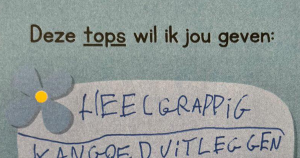 Deze tops wil ik jou geven:
HEELGRAPPIG
KANGOED UITLEGGEN